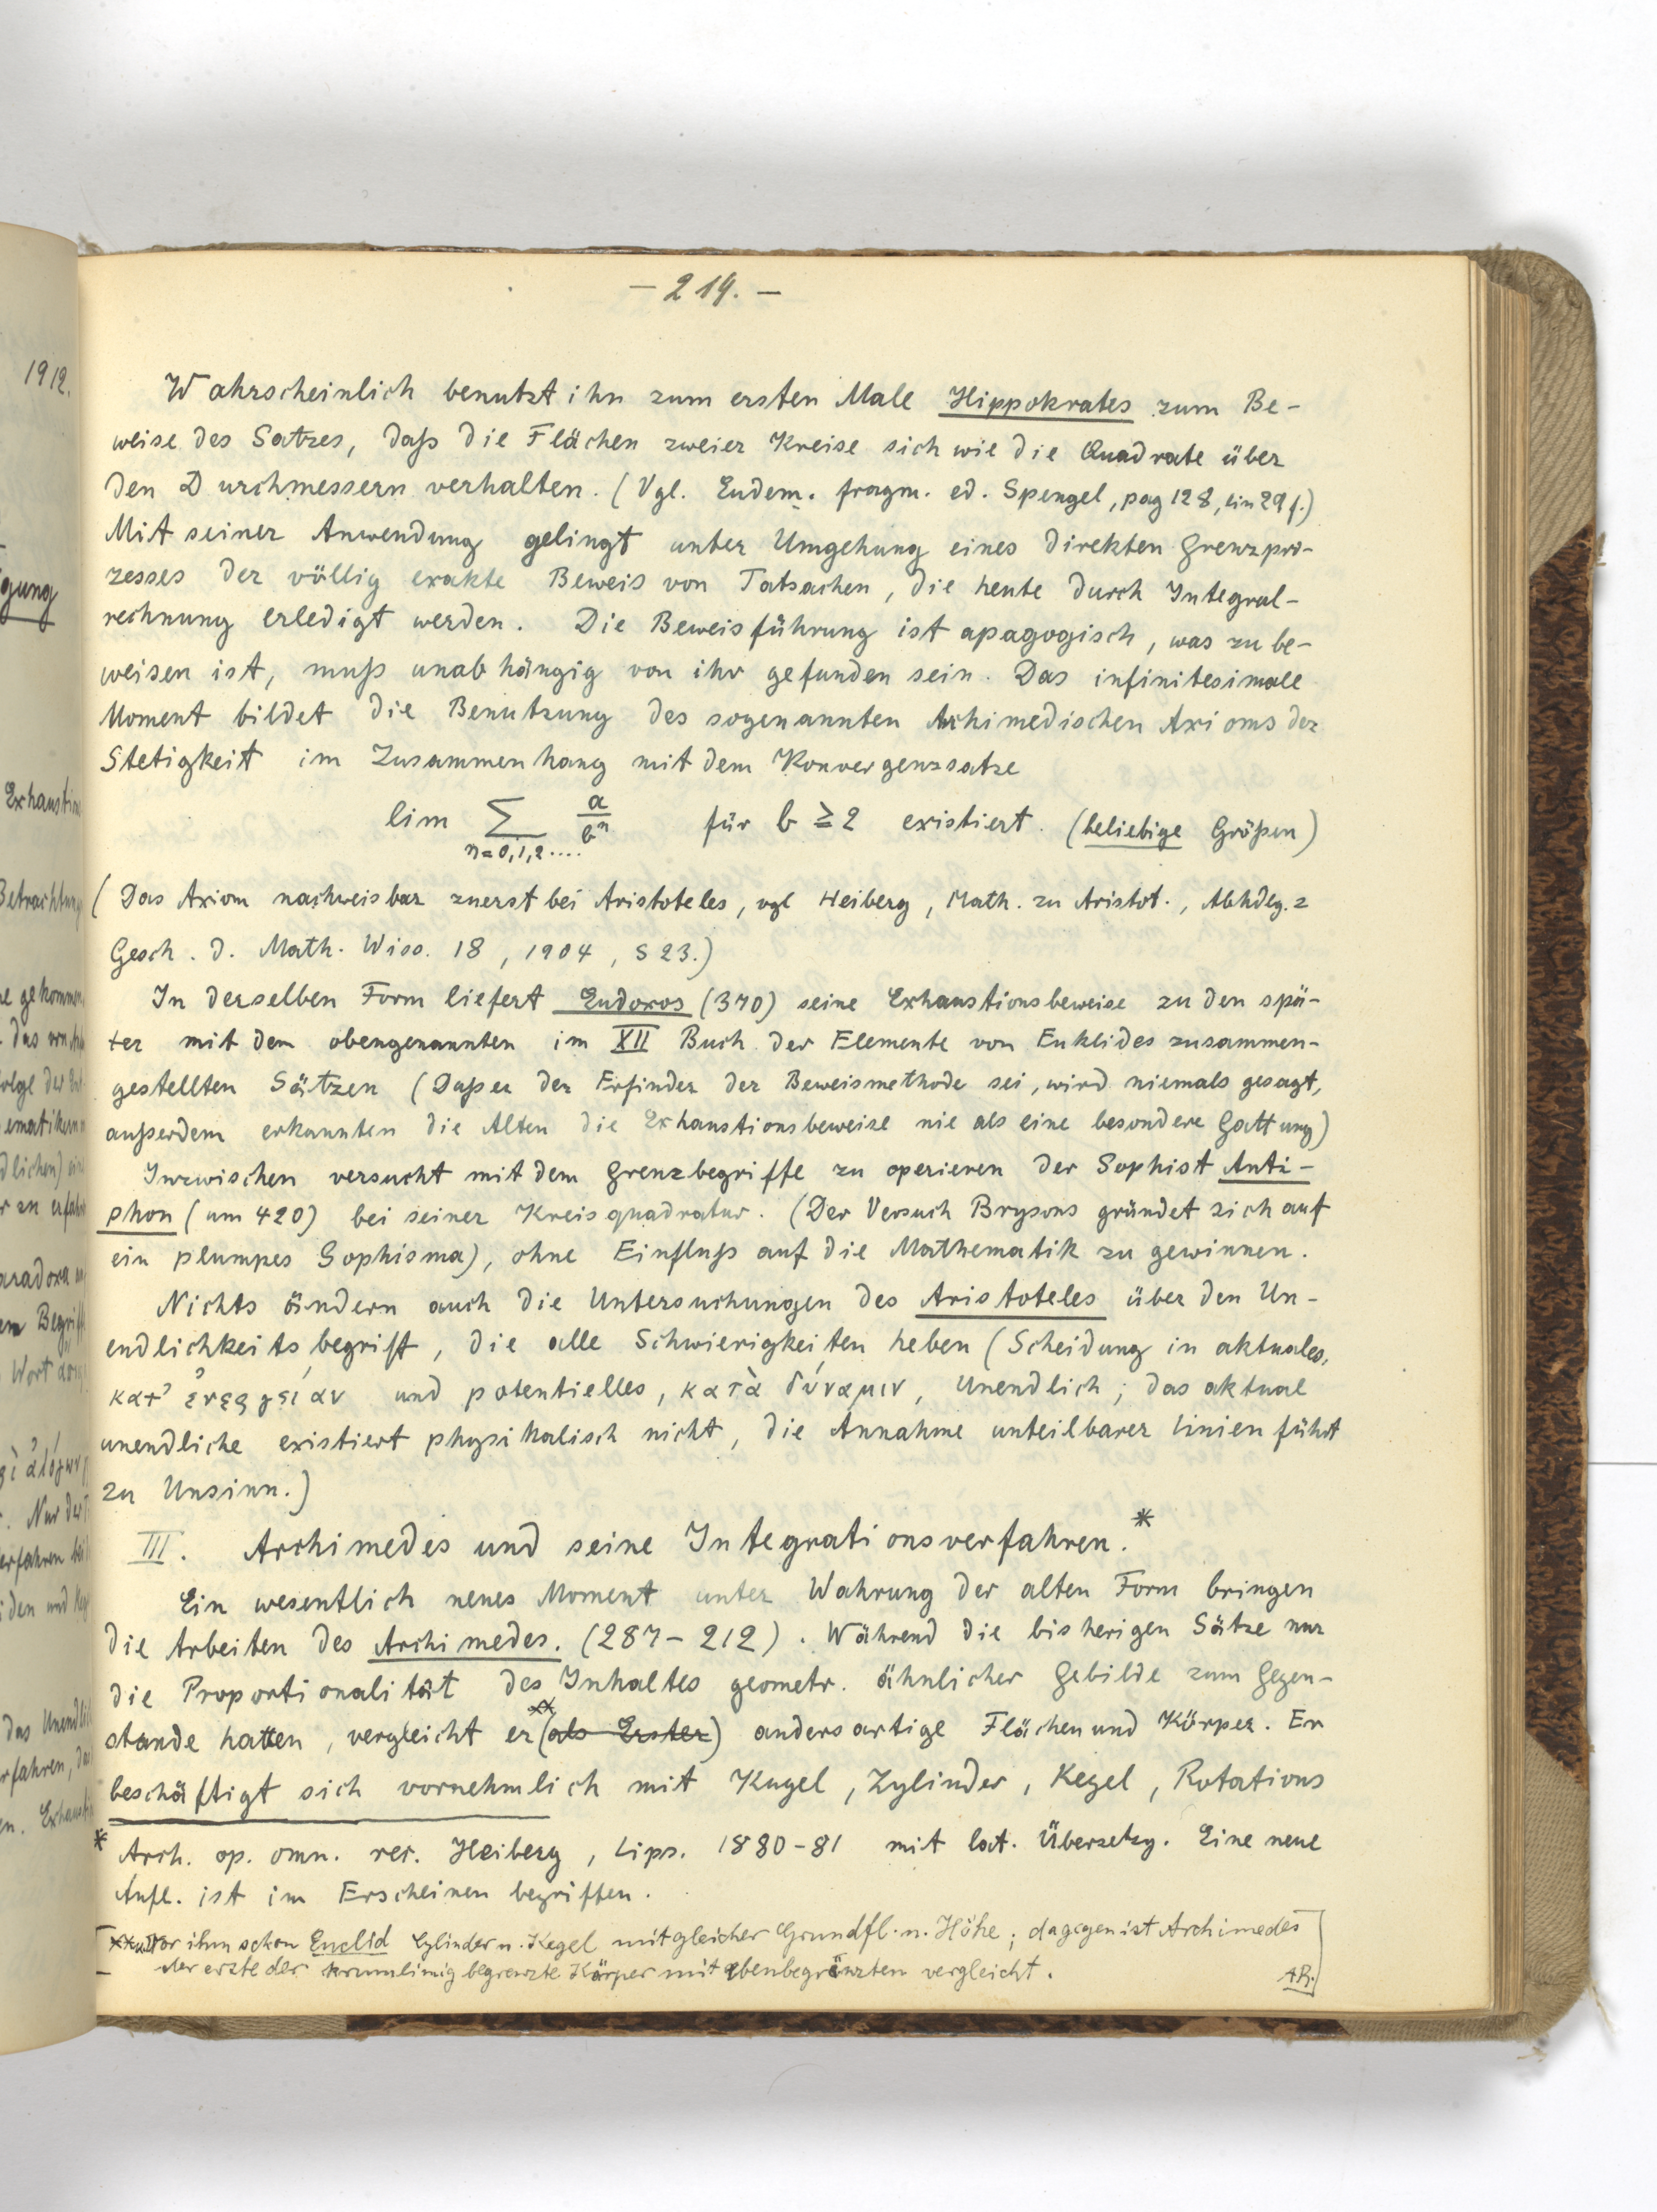 — 219. —
Wahrscheinlich benutzt ihn zum ersten Male Hippokrates zum Be-
weise des Satzes, daß die Flächen zweier Kreise sich wie die Quadrate über
den Durchmessern verhalten. (Vgl. Eudem. fragm. ed. Spengel, pag 128, lin 29 f.)
Mit seiner Anwendung gelingt unter Umgehung eines direkten Grenzpro-
zesses der völlig exakte Beweis von Tatsachen, die heute durch Integral-
rechnung erledigt werden. Die Beweisführung ist apagogisch, was zu be-
weisen ist, muß unabhängig von ihr gefunden sein. Das infinitesimale
Moment bildet die Benutzung des sogenannten Archimedischen Axioms der
Stetigkeit im Zusammenhang mit dem Konvergenzsatze
lim ∑ a/bⁿ für b ≥ 2 existiert. (beliebige Größen)
n=0,1,2....
(Das Axiom nachweisbar zuerst bei Aristoteles, vgl Heiberg, Math. zu Aristot., Abhdlg. z
Gesch. d. Math. Wiss. 18, 1904, S 23.)
In derselben Form liefert Eudoxos (370) seine Exhaustionsbeweise zu den spä-
ter mit dem obengenannten im XII Buch der Elemente von Euklides zusammen-
gestellten Sätzen (Daß er der Erfinder der Beweismethode sei, wird niemals gesagt,
außerdem erkannten die Alten die Exhaustionsbeweise nie als eine besondere Gattung)
Inzwischen versucht mit dem Grenzbegriffe zu operieren der Sophist Anti-
phon (um 420) bei seiner Kreisquadratur. (Der Versuch Brysons gründet sich auf
ein plumpes Sophisma), ohne Einfluß auf die Mathematik zu gewinnen.
Nichts ändern auch die Untersuchungen des Aristoteles über den Un-
endlichkeitsbegriff, die alle Schwierigkeiten heben (Scheidung in aktuales,
κατ' ἐνεργείαν und potentielles, κατὰ δύναμιν, Unendlich; das aktual
unendliche existiert physikalisch nicht, die Annahme unteilbarer Linien führt
zu Unsinn.)
III. Archimedes und seine Integrationsverfahren.*
Ein wesentlich neues Moment unter Wahrung der alten Form bringen
die Arbeiten des Archimedes. (287–212). Während die bisherigen Sätze nur
die Proportionalität des Inhaltes geometr. ähnlicher Gebilde zum Gegen-
stande hatten, vergleicht er ** (als Erster) andersartige Flächen und Körper. Er
beschäftigt sich vornehmlich mit Kugel, Zylinder, Kegel, Rotations
* Arch. op. omn. rec. Heiberg, Lips. 1880–81 mit lat. Übersetzg. Eine neue
Aufl. ist im Erscheinen begriffen.
[** Vor ihm schon Euclid Cylinder u. Kegel mit gleicher Grundfl. u. Höhe; dagegen ist Archimedes
der erste der krummlinig begrenzte Körper mit ebenbegrenzten vergleicht. AR.]
1912.